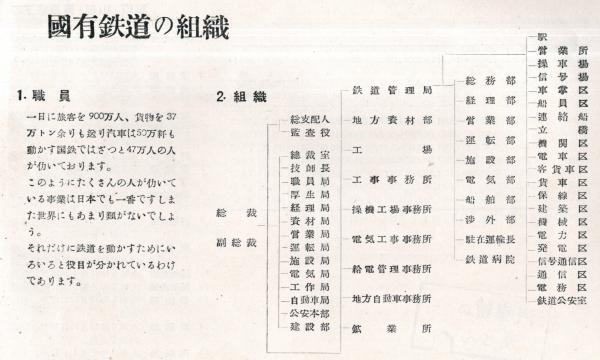 國有鉄道の組織
1. 職員
一日に旅客を900万人、貨物を37
万トン余りも送り汽車は50万粁も
動かす国鉄ではざつと47万人の人
が仂いております。
このようにたくさんの人が仂いて
いる事業は日本でも一番ですしま
た世界にもあまり類がないでしょ
う。
それだけに鉄道を動かすためにい
ろいろと役目が分かれているわけ
であります。
2. 組織
総裁
副総裁
総支配人
監査役
総裁室
技師長
職員局
厚生局
経理局
資材局
営業局
運転局
施設局
電気局
工作局
自動車局
公安本部
建設部
鉄道管理局
地方資材部
工場
工事事務所
操機工場事務所
電気工事事務所
給電管理事務所
地方自動車事務所
鉱業所
総務部
経理部
営業部
運転部
施設部
電気部
船舶部
渉外部
駐在運輸長
鉄道病院
駅
営業所
操車場
信号場
車掌区
船員区
連絡船
立橋
機関区
電車区
客貨車区
保線区
建築区
機械区
電力区
発電区
信号通信区
通信区
電務区
鉄道公安室